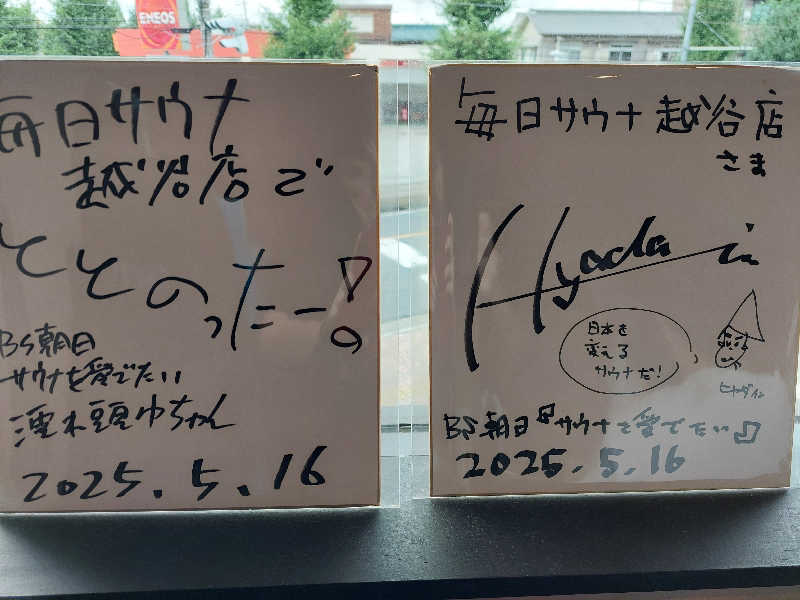 ENEOS
毎日サウナ
越谷店で
ととのったー!。
BS朝日
サウナを愛でたい
濡れ頭巾ちゃん
2025.5.16
毎日サウナ 越谷店
さま
Hyadain
日本を
変える
サウナだ!
ヒャダイン
BS朝日『サウナを愛でたい』
2025.5.16